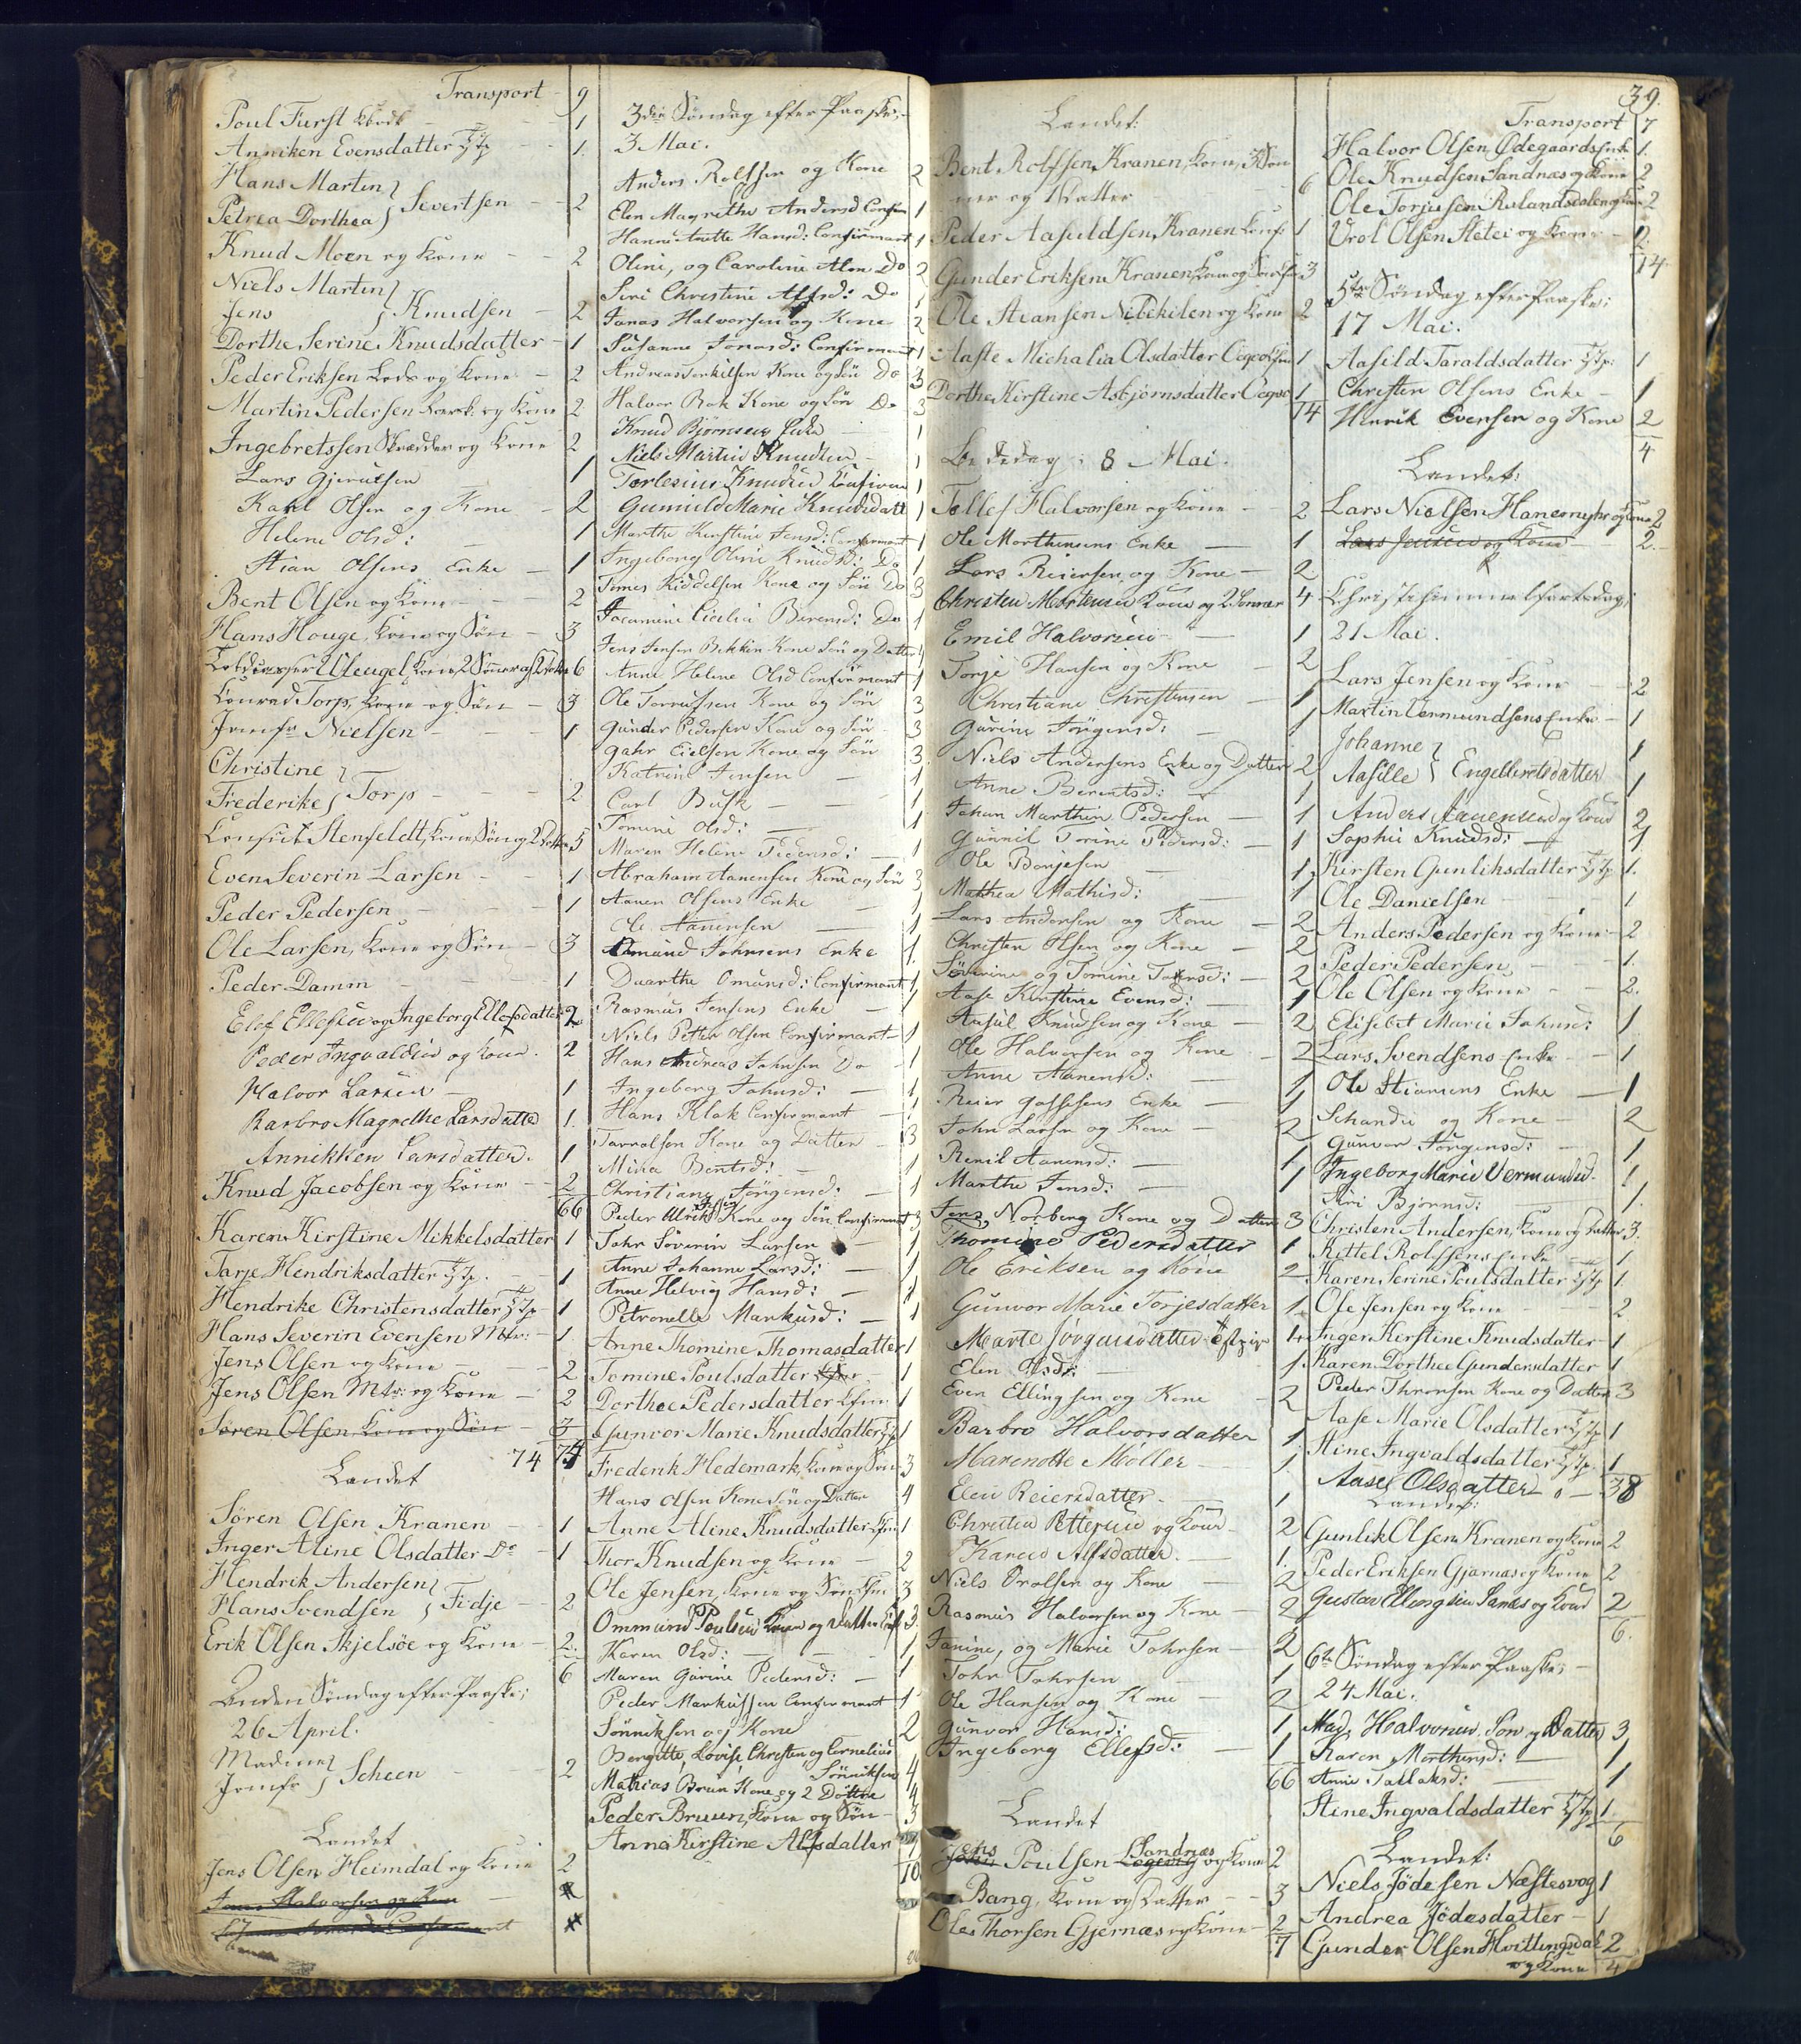 Transport 9
Poul Furst 1
Anniken Evensdatter 1.
Hans Martin
Petrea Dorthea } Severtsen 2
Knud Moen og Kone 2
Niels Martin
Jens } Knudsen 2
Dorthe Serine Knudsdatter 1
Peder Eriksen Lods og Kone 2
Martin Pedersen og Kone 2
Ingebretssen Skrædder og Kone 2
Lars Gjerulsen 1
Karl Olsen og Kone 2
Helene Olsd: 1
Stian Olsens Enke 1
Bent Olsen og Kone 2
Hans Houge, Kone og Søn 3
Kone 2 Sønner og 2 6
Konrad Torp, Kone og Søn 3
Jomfr Nielsen 1
Christine
Frederike } Torp 2
Consul Stenfeldt, Kone Søn og 2 5
Even Severin Larsen 1
Peder Pedersen 1
Ole Larsen, Kone og Søn 3
Peder Damm 1
Elef Ellefsen og Ingeborg Ellefsdatter 2
Peder Ingvaldsen og Kone 2
Halvor Larsen 1
Barbro Magrethe Larsdatter 1.
Annikken Larsdatter. 1
Knud Jacobsen og Kone 2
66
Karen Kirstine Mikkelsdatter 1
Tarje Hendriksdatter 1
Hendrike Christensdatter 1
Hans Severin Evensen Mtr: 1.
Jens Olsen og Kone 2
Jens Olsen Mtr: og Kone 2
Søren Olsen, Kone og Søn 3
74 74
Landet
Søren Olsen Kranen 1
Inger Aline Olsdatter Do 1
Hendrik Andersen
Hans Svendsen } Fidje 2
Erik Olsen Skjelsöe og Kone 2.
6
Anden Søndag efter Paaske;
26 April.
Madme
Jomfr } Scheen 2
Landet
Jens Olsen Heimdal og Kone 2
3die Søndag efter Paaske;
3 Mai.
Anders Rolfsen og Kone 2
Elen Magrethe Andersd Confirm 1
Hanne Anette Hansd: Confirmant 1
Oline, og Caroline Do 2
Siri Christine Alfsd: Do 1
Jonas Halvorsen og Kone 2
Susanne Jonasd: Confirmant 1
Andreas Terkilsen Kone og Søn Do 3
Halvor Bok Kone og Søn Do 3
Knud Bjørnsens Enke 1
Niels Martin Knudsen 1
Terlesius Knudsen Confirm 1
Gunnild Marie Knudsdatt 1
Marthe Kirstine Jensd: Confirmant 1
Ingeborg Oline Knudsd: Do 1
Tomes Kiddelsen Kone og Søn Do 3
Jacomine Cicilie Berensd: Do 1
Jens Jensen Bekkin Kone Søn og Datter 4
Anne Helene Olsd Confirmant 1
Ole Torrufsen Kone og Søn 3
Gunder Pedersen Kone og Søn 3
Gahr Eielsen Kone og Søn 3
Katrine Jensen 1
Carl Busk 1
Tomine Olsd: 1
Maren Helene Pedersd: 1
Abraham Aanensen Kone og Søn 3
Aanen Olsens Enke 1
Ole Aanensen 1
Omund Johnsens Enke 1.
Daarthe Omunsd: Confirmant 1
Rasmus Jensens Enke 1
Niels Petter Olsen Confirmant 1
Hans Andreas Johnsen Do 1
Ingeborg Johnsd: 1
Hans Klok Confirmant 1
Tarralsen Kone og Datter 3
Mina Bentsd: 1
Christiane Jörgensd: 1
Peder Ulrik Kone og Søn Confirmant 3
Johr Söverin Larsen 1
Anne Johanne Larsd: 1
Anne Helvig Hansd: 1
Petronelle Markusd: 1
Anne Thomine Thomasdatter 1
Tomine Poulsdatter 1
Dorthee Pedersdatter 1
Gunvor Marie Knudsdatter 1
Frederik Hedemark, Kone og Søn 3
Hans Olsen Kone Søn og Datter 4
Anne Aline Knudsdatter 1
Thor Knudsen og Kone 2
Ole Jensen, Kone og Søn 3
Ommund Poulsen Kone og Datter 3.
Karen Olsd: 1
Maren Gurine Pedersd: 1
Peder Markussen Confirmant 1
Sönniksen og Kone 2
Bergitte, Lovise Christen og Cornelius Sönniksen 4
Mathias Brun Kone og 2 Döttre 4
Peder Bruun, Kone og Søn 3
Anna Kirstine Alfsdatter
39.
Landet:
Bent Rolfsen Kranen, Kone, 3 Søn
ner og 1 Datter 6
Peder Aasuldsen Kranen 1
Gunder Eriksen Kranen, Kone og 3
Ole Stiansen Nibekilen og Kone 2
Aaste Michalia Olsdatter 1
Dorthe Kirstine Asbjørnsdatter 1
14
Bededag: 8 Mai.
Tellef Halvorsen og Kone 2
Ole Morthensens Enke 1
Lars Reiersen og Kone 2
Christen Mortensen Kone og 2 Sønner 4
Emil Halvorsen 1
Torje Hansen og Kone 2
Christiane Christensen 1
Gurine Jörgensd: 1
Niels Andersens Enke og Datter 2
Anne Berentsd: 1
Johan Marthin Pedersen 1
Gunnil Torine Pedersd: 1
Ole Borjesen 1
Mathea Mathisd: 1
Lars Andersen og Kone 2
Christen Olsen og Kone 2
Söverine og Tomine 2
Aase Kirstine Evensd: 1
Aasul Knudsen og Kone 2
Ole Halvorsen og Kone 2
Anne Aanensd: 1
Reier Enke 1
John Larsen og Kone 2
Renil Aanensd: 1
Marthe Jensd: 1
Jens Norberg Kone og Datter 3
Thomine Pedersdatter 1
Ole Eriksen og Kone 2
Gunvor Marie Torjesdatter 1
Marte Jörgensdatter 1
Elen Olsdr: 1
Even Ellingsen og Kone 2
Barbro Halvorsdatter 1
Marenotte Möller 1
Elen Reiersdatter 1
Christen Pettersen og Kone 2
Karen Alfsdatter 1.
Niels Örolsen og Kone 2
Rasmus Halvorsen og Kone 2
Janine, og Marie Tohrsen 2
Tohr Tohrsen 1
Ole Hansen og Kone 2
Gunvor Hansd: 1
Ingeborg Ellefsd: 1
66
Landet
Jens Poulsen Sandnæs og Kone 2
Bang, Kone og Datter 3
Ole Thorsen Gjernæs og Kone 2
7
Transport 7
Halvor Olsen, Ødegaards Enke 1.
Ole Knudsen Sandnæs og Kone 2
Ole Torjusen Rolandsdalen og Kone 2
Vrol Olsen Stetei og Kone 2
14.
5te Søndag efter Paaske;
17 Mai.
Aasild Taraldsdatter 1
Christen Olsens Enke 1
Henrik Evensen og Kone 2
4
Landet:
Lars Nielsen og Kone 2
Lars Jensen og Kone 2.
Christi himmelfartsdag;
21 Mai.
Lars Jensen og Kone 2
Martin Vermundsens Enke 1
Johanne 1
Aasille } Engelbretsdatter 1
Anders Aanensen og Kone 2
Sophie Knudsd: 1
Kirsten Gunliksdatter 1.
Ole Danielsen 1
Anders Pedersen og Kone 2
Peder Pedersen 1.
Ole Olsen og Kone 2.
Elisebet Marie Johnsd: 1
Lars Svendsens Enke 1
Ole Stiansens Enke 1
Schandie og Kone 2
Gunvor Jörgensd: 1
Ingeborg Marie Vermundsd. 1
Siri Bjørnsd: 1.
Christen Andersen, Kone og Datter 3.
Kittel Rolfsens Enke 1
Karen Serine Poulsdatter 1.
Ole Jensen og Kone 2
Inger Kirstine Knudsdatter 1
Karen Dorthee Gundersdatter 1
Peder Thronsen Kone og Datter 3
Aase Marie Olsdatter 1
Stine Ingvaldsdatter 1
Aase Olsdatter 38
Landet:
Gunlik Olsen Kranen og Kone 2
Peder Eriksen Gjernæs og Kone 2
Gustav Ellingsen Sanæs og Kone 2
6.
6te Søndag efter Paaske;
24 Mai.
Mads Halvorsen. Søn og Datter 3
Karen Morthensd: 1
Anne Tallaksd: 1
Stine Ingvaldsdatter 1.
6
Landet:
Niels Jödesen Næstesvog 1
Andrea Jödesdatter 1
Gunder Olsen Hvitlingsdal 2
og Kone 4